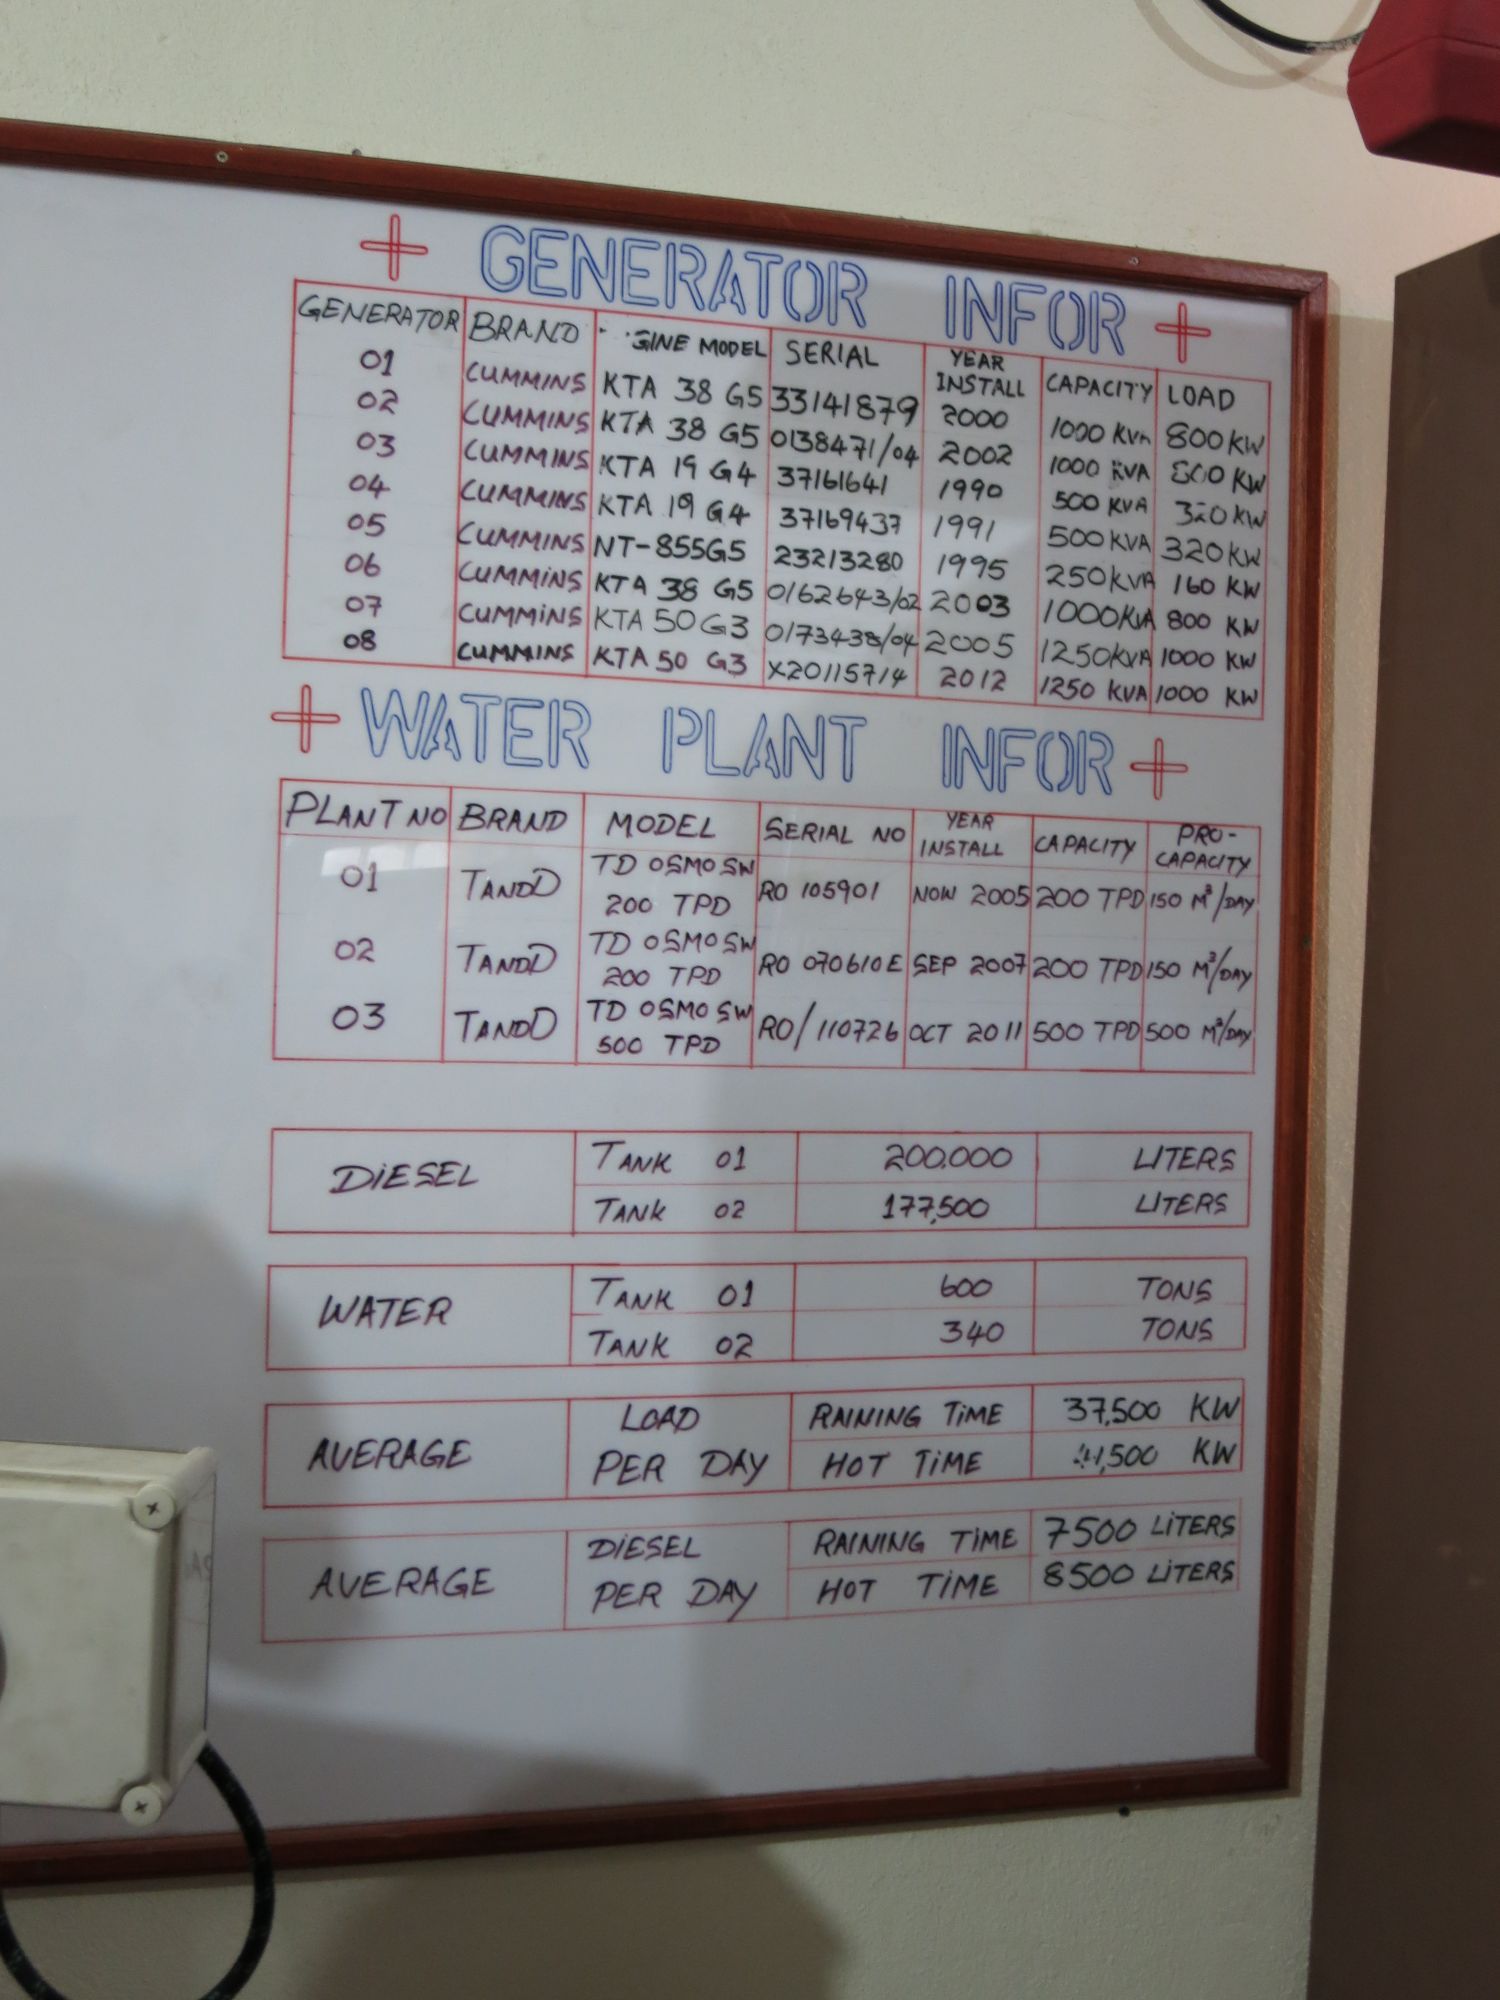 + GENERATOR INFOR +
GENERATOR BRAND GINE MODEL SERIAL YEAR INSTALL CAPACITY LOAD
01 CUMMINS KTA 38 G5 33141879 2000 1000 KVA 800 KW
02 CUMMINS KTA 38 G5 0138471/04 2002 1000 KVA 800 KW
03 CUMMINS KTA 19 G4 37161641 1990 500 KVA 320 KW
04 CUMMINS KTA 19 G4 37169437 1991 500 KVA 320 KW
05 CUMMINS NT-855G5 23213280 1995 250 KVA 160 KW
06 CUMMINS KTA 38 G5 0162643/02 2003 1000 KVA 800 KW
07 CUMMINS KTA 50 G3 0173438/04 2005 1250 KVA 1000 KW
08 CUMMINS KTA 50 G3 X20115714 2012 1250 KVA 1000 KW
+ WATER PLANT INFOR +
PLANT NO BRAND MODEL SERIAL NO YEAR INSTALL CAPACITY PRO-CAPACITY
01 TANDD TD OSMO SW 200 TPD RO 105901 NOW 2005 200 TPD 150 M³/DAY
02 TANDD TD OSMO SW 200 TPD RO 070610E SEP 2007 200 TPD 150 M³/DAY
03 TANDD TD OSMO SW 500 TPD RO/110726 OCT 2011 500 TPD 500 M³/DAY
DIESEL TANK 01 200.000 LITERS
TANK 02 177,500 LITERS
WATER TANK 01 600 TONS
TANK 02 340 TONS
AVERAGE LOAD PER DAY RAINING TIME 37,500 KW
HOT TIME KW
AVERAGE DIESEL PER DAY RAINING TIME 7500 LITERS
HOT TIME 8500 LITERS